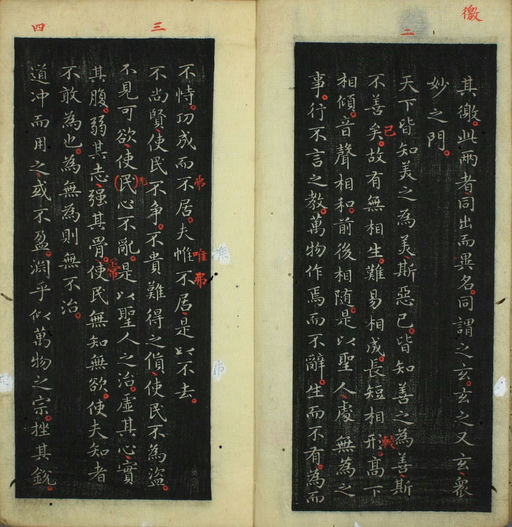 徼
二
其徼此兩者同出而異名同謂之玄玄之又玄衆
妙之門
天下皆知美之為美斯惡已皆知善之為善斯
不善矣故有無相生難易相成長短相形高下
已
相傾音聲相和前後相隨是以聖人處無為之
事行不言之教萬物作焉而不辭生而不有為而
三
四
不恃功成而不居夫惟不居是以不去
弗
唯
弗
不尚賢使民不爭不貴難得之貨使民不為盜
不見可欲使民心不亂是以聖人之治虛其心實
其腹弱其志强其骨使民無知無欲使夫知者
不敢為也為無為則無不治
道冲而用之或不盈淵乎似萬物之宗挫其銳